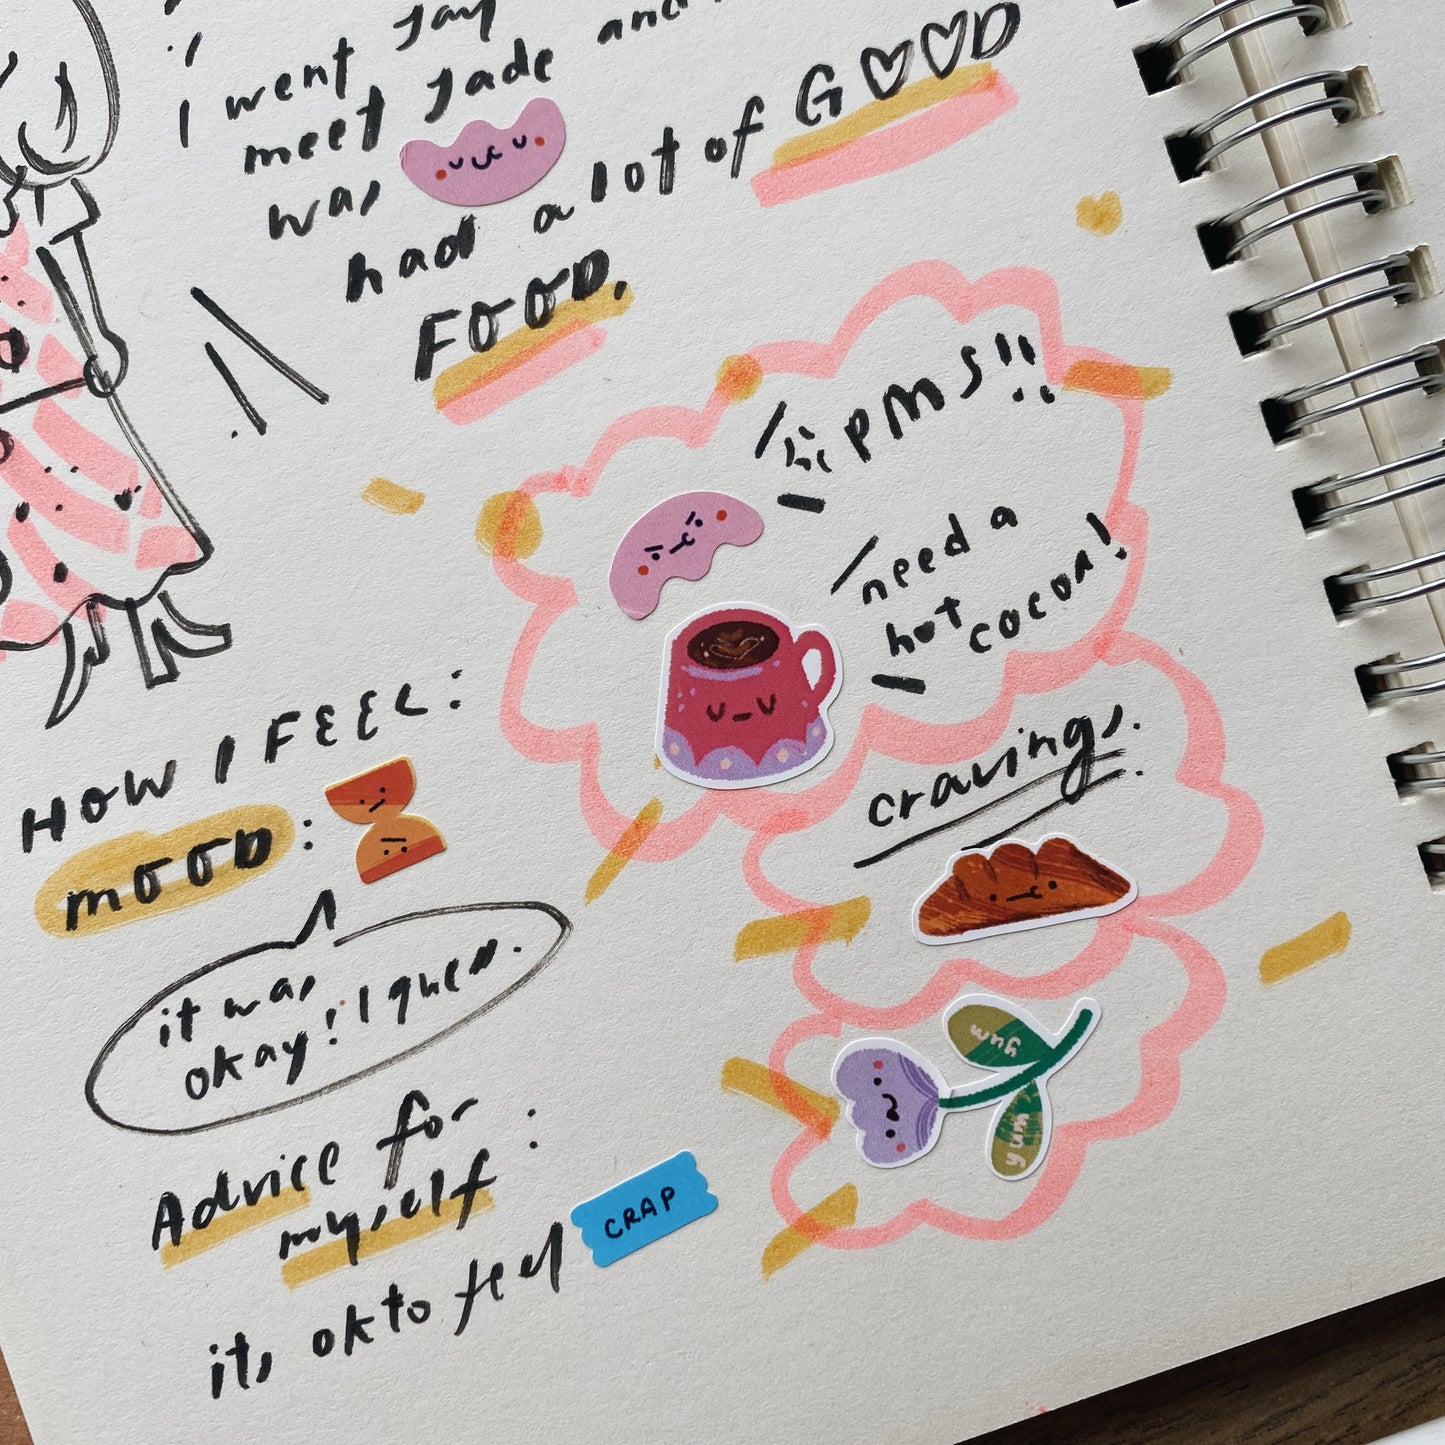 I went
meet Jade and
was
had a lot of GOOD
FOOD.
hi PMS!!
need a
hot
cocoa!
cravings.
yum
yum
HOW I FEEL:
MOOD:
it was
okay! I guess.
Advice for
myself:
its ok to feel CRAP